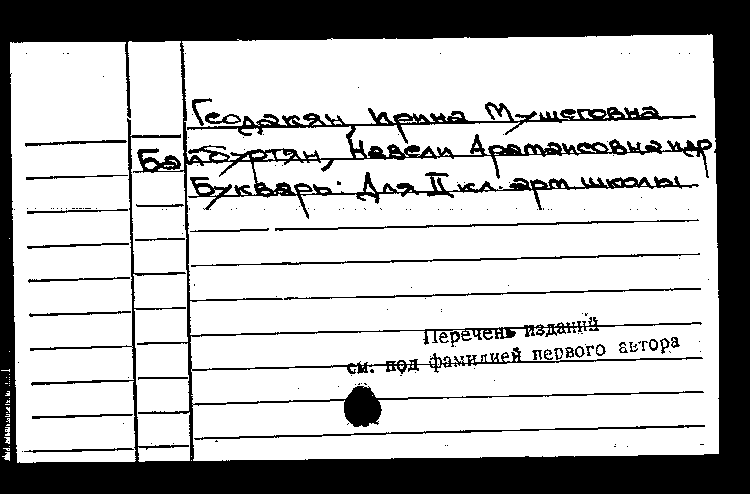 Геодакян, Ирина Мушеговна
Байбуртян, Навели Арамаисовна и др.
Букварь: Для II кл. арм школы
Перечень изданий
см. под фамилией первого автора